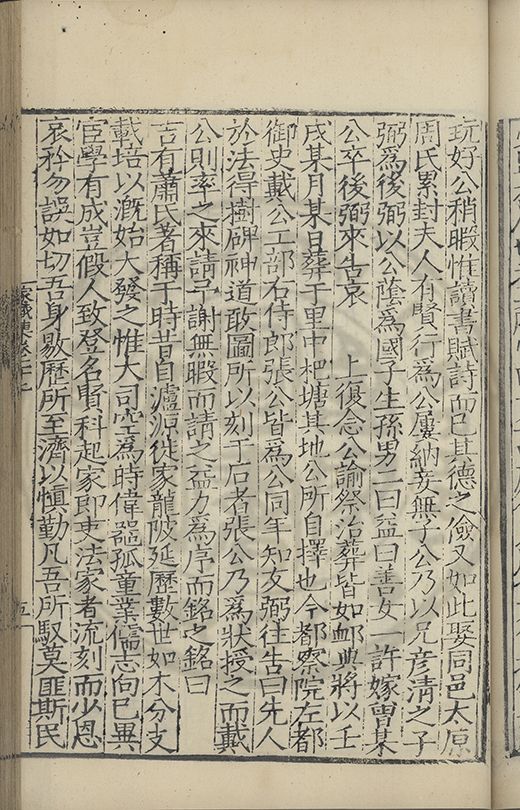 玩好公稍暇惟讀書賦詩而已其德之儉又如此娶同邑太原
周氏累封夫人有賢行為公屢納妾無子公乃以兄彦清之子
弼為後弼以公蔭為國子生孫男二曰益曰善女一許嫁曾某
公卒後弼來告哀　上復念公諭祭治葬皆如卹典將以壬
戌某月某日葬于里中杷塘其地公所自擇也今都察院左都
御史戴公工部右侍郎張公皆為公同年知友弼往告曰先人
於法得樹碑神道敢圖所以刻于石者張公乃為狀授之而戴
公則率之來請予謝無暇而請之益力為序而銘之銘曰
吉有蕭氏著稱于時昔自瀘源徙家龍陂延歷數世如木分支
載培以溉始大發之惟大司空為時偉器孤童業儒志向已異
宦學有成豈假人致登名賢科起家即吏法家者流刻而少恩
哀矜勿誤如切吾身敭歷所至濟以慎勤凡吾所馭莫匪斯民
家藏集卷